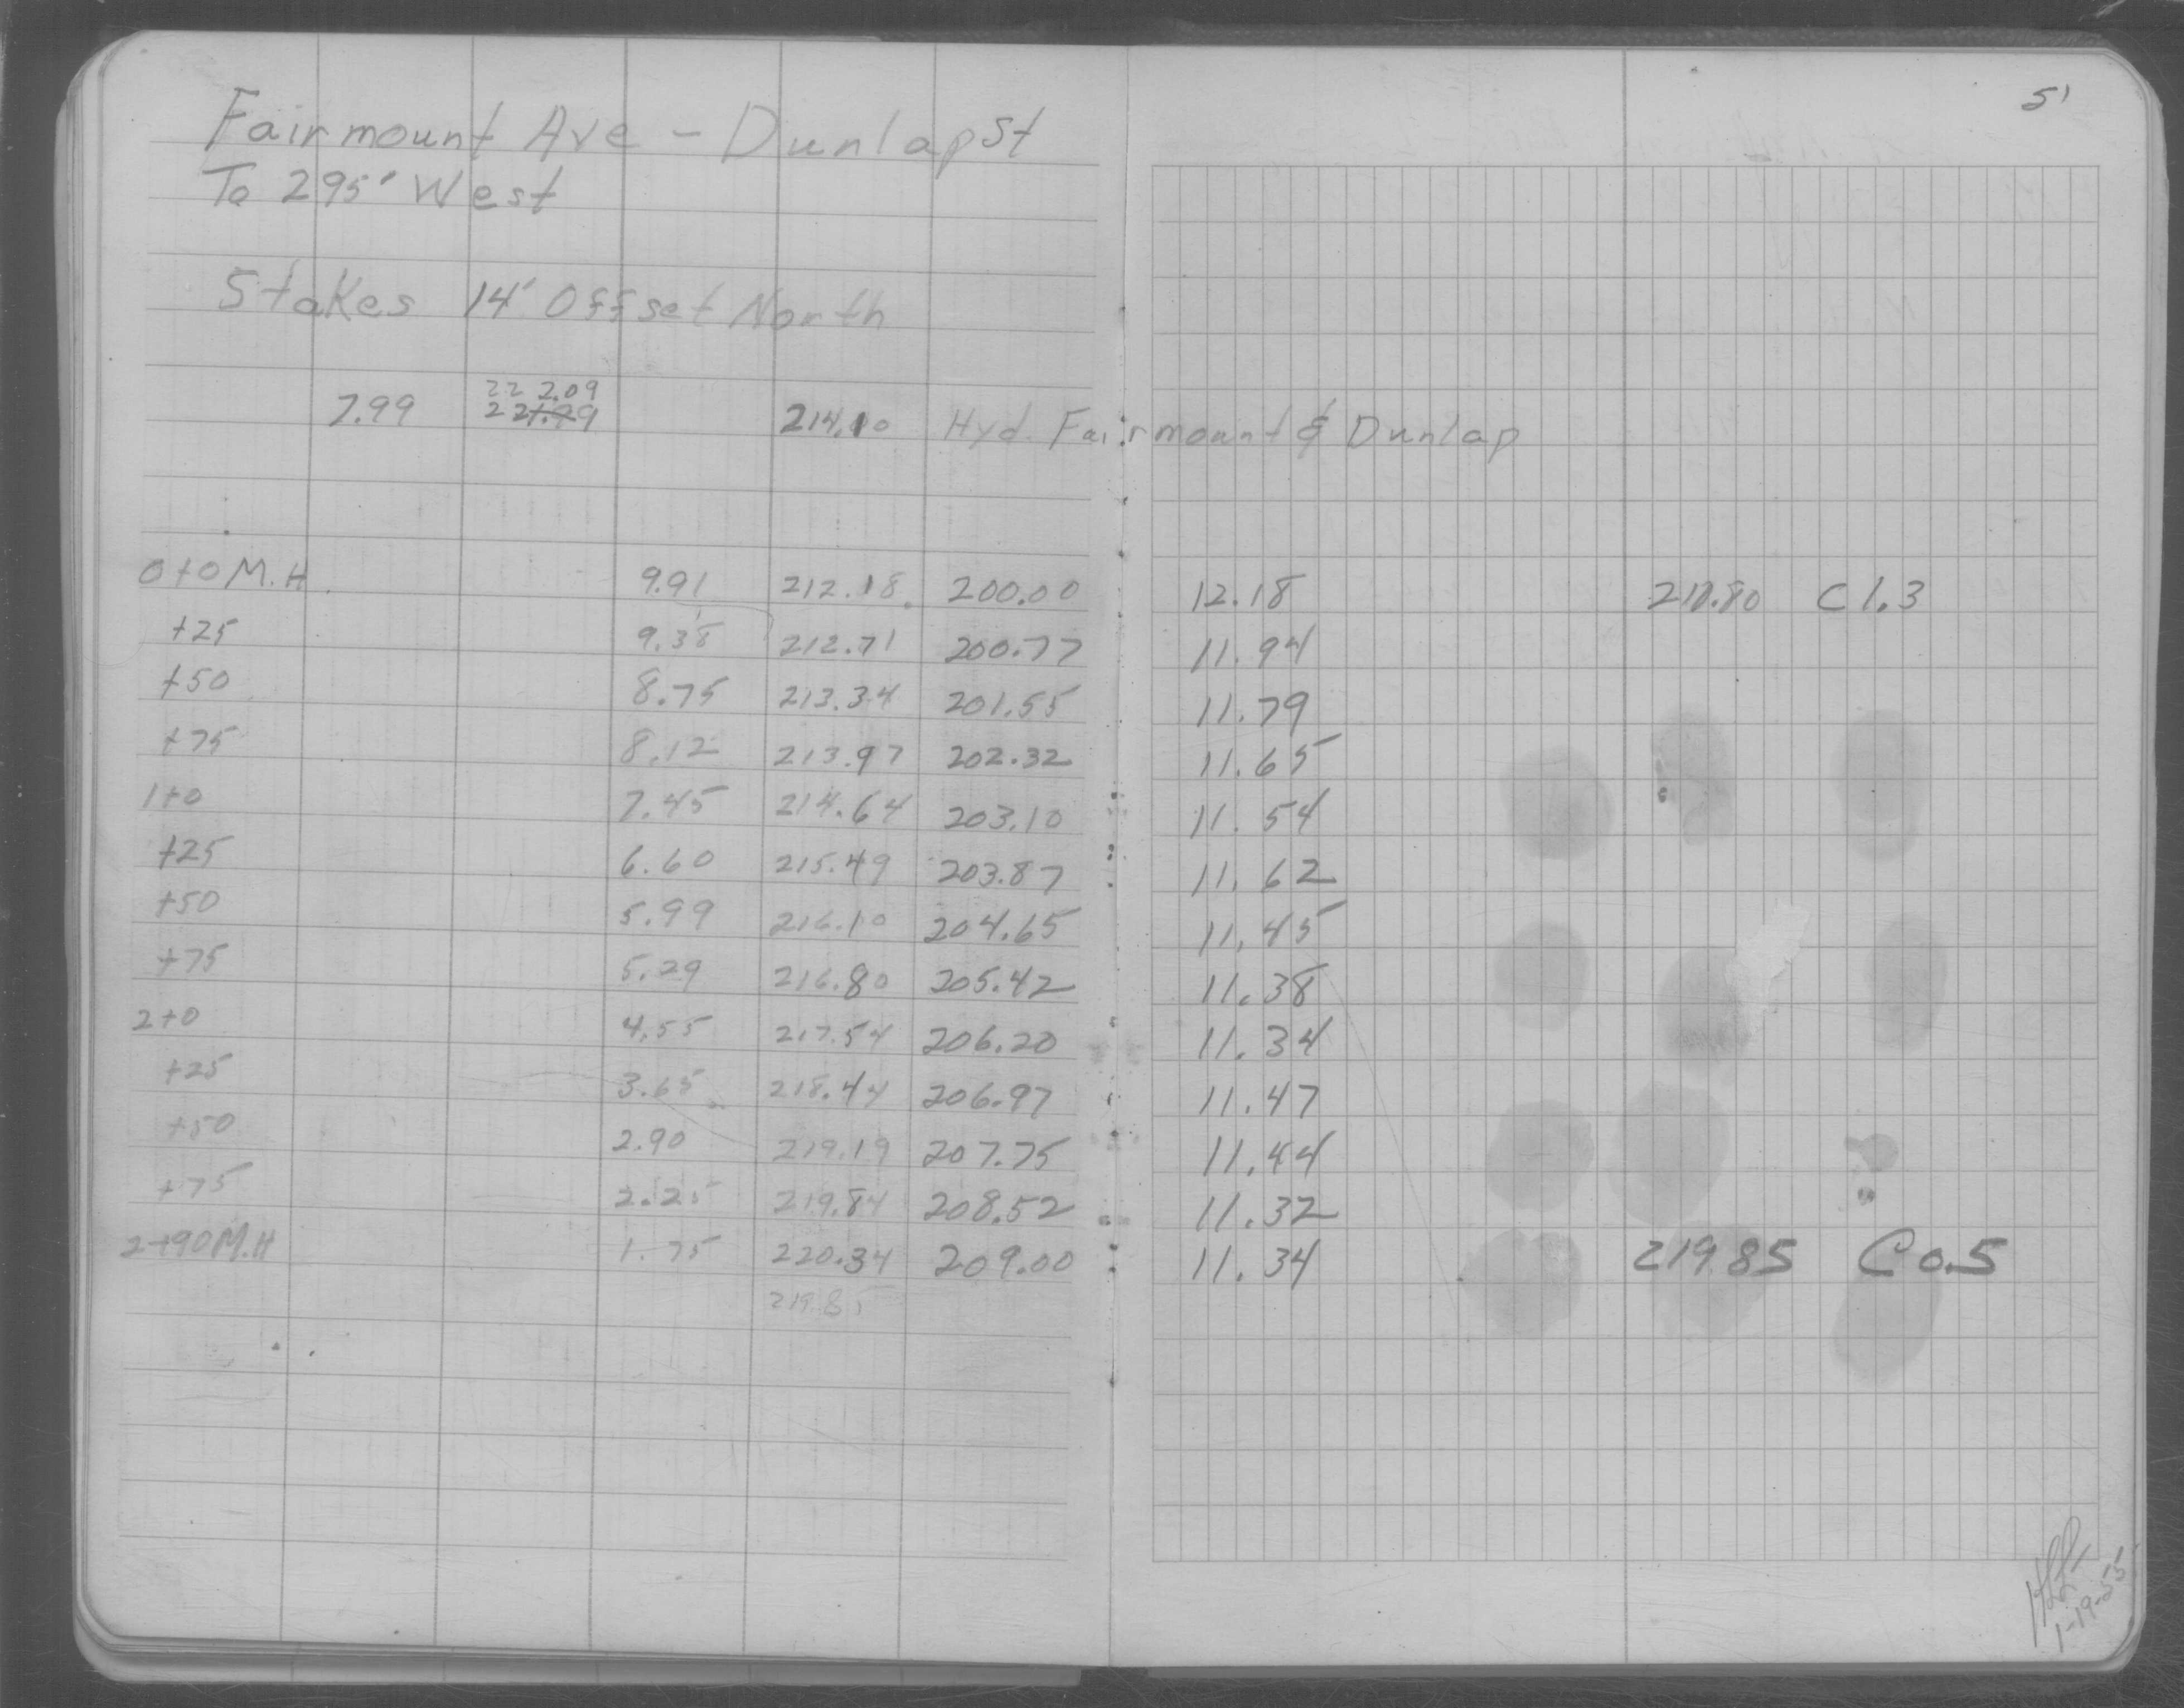 51
Fairmount Ave - Dunlap St
To 295' West
Stakes 14' Offset North
222.09
7.99 221.99 214.10 Hyd. Fairmount & Dunlap
0+0 M.H. 9.91 212.18 200.00 12.18 210.80 C 1.3
+25 9.38 212.71 200.77 11.94
+50 8.75 213.34 201.55 11.79
+75 8.12 213.97 202.32 11.65
1+0 7.45 214.64 203.10 11.54
+25 6.60 215.49 203.87 11.62
+50 5.99 216.10 204.65 11.45
+75 5.29 216.80 205.42 11.38
2+0 4.55 217.54 206.20 11.34
+25 3.65 218.44 206.97 11.47
+50 2.90 219.19 207.75 11.44
+75 2.25 219.84 208.52 11.32
2+90 M.H 1.75 220.34 209.00 11.34 219.85 C 0.5
219.85
1-19-55